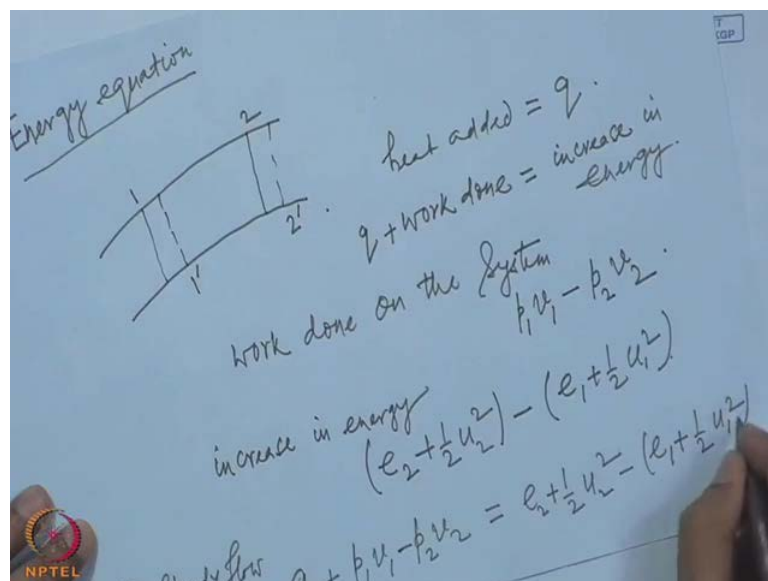 Energy equation
1
2
1'
2'
heat added = q.
q + work done = increase in
energy.
work done on the System
p₁v₁ - p₂v₂.
increase in energy
(e₂ + ½u₂²) - (e₁ + ½u₁²).
flow q + p₁v₁ - p₂v₂ = e₂ + ½u₂² - (e₁ + ½u₁²)
KGP
NPTEL